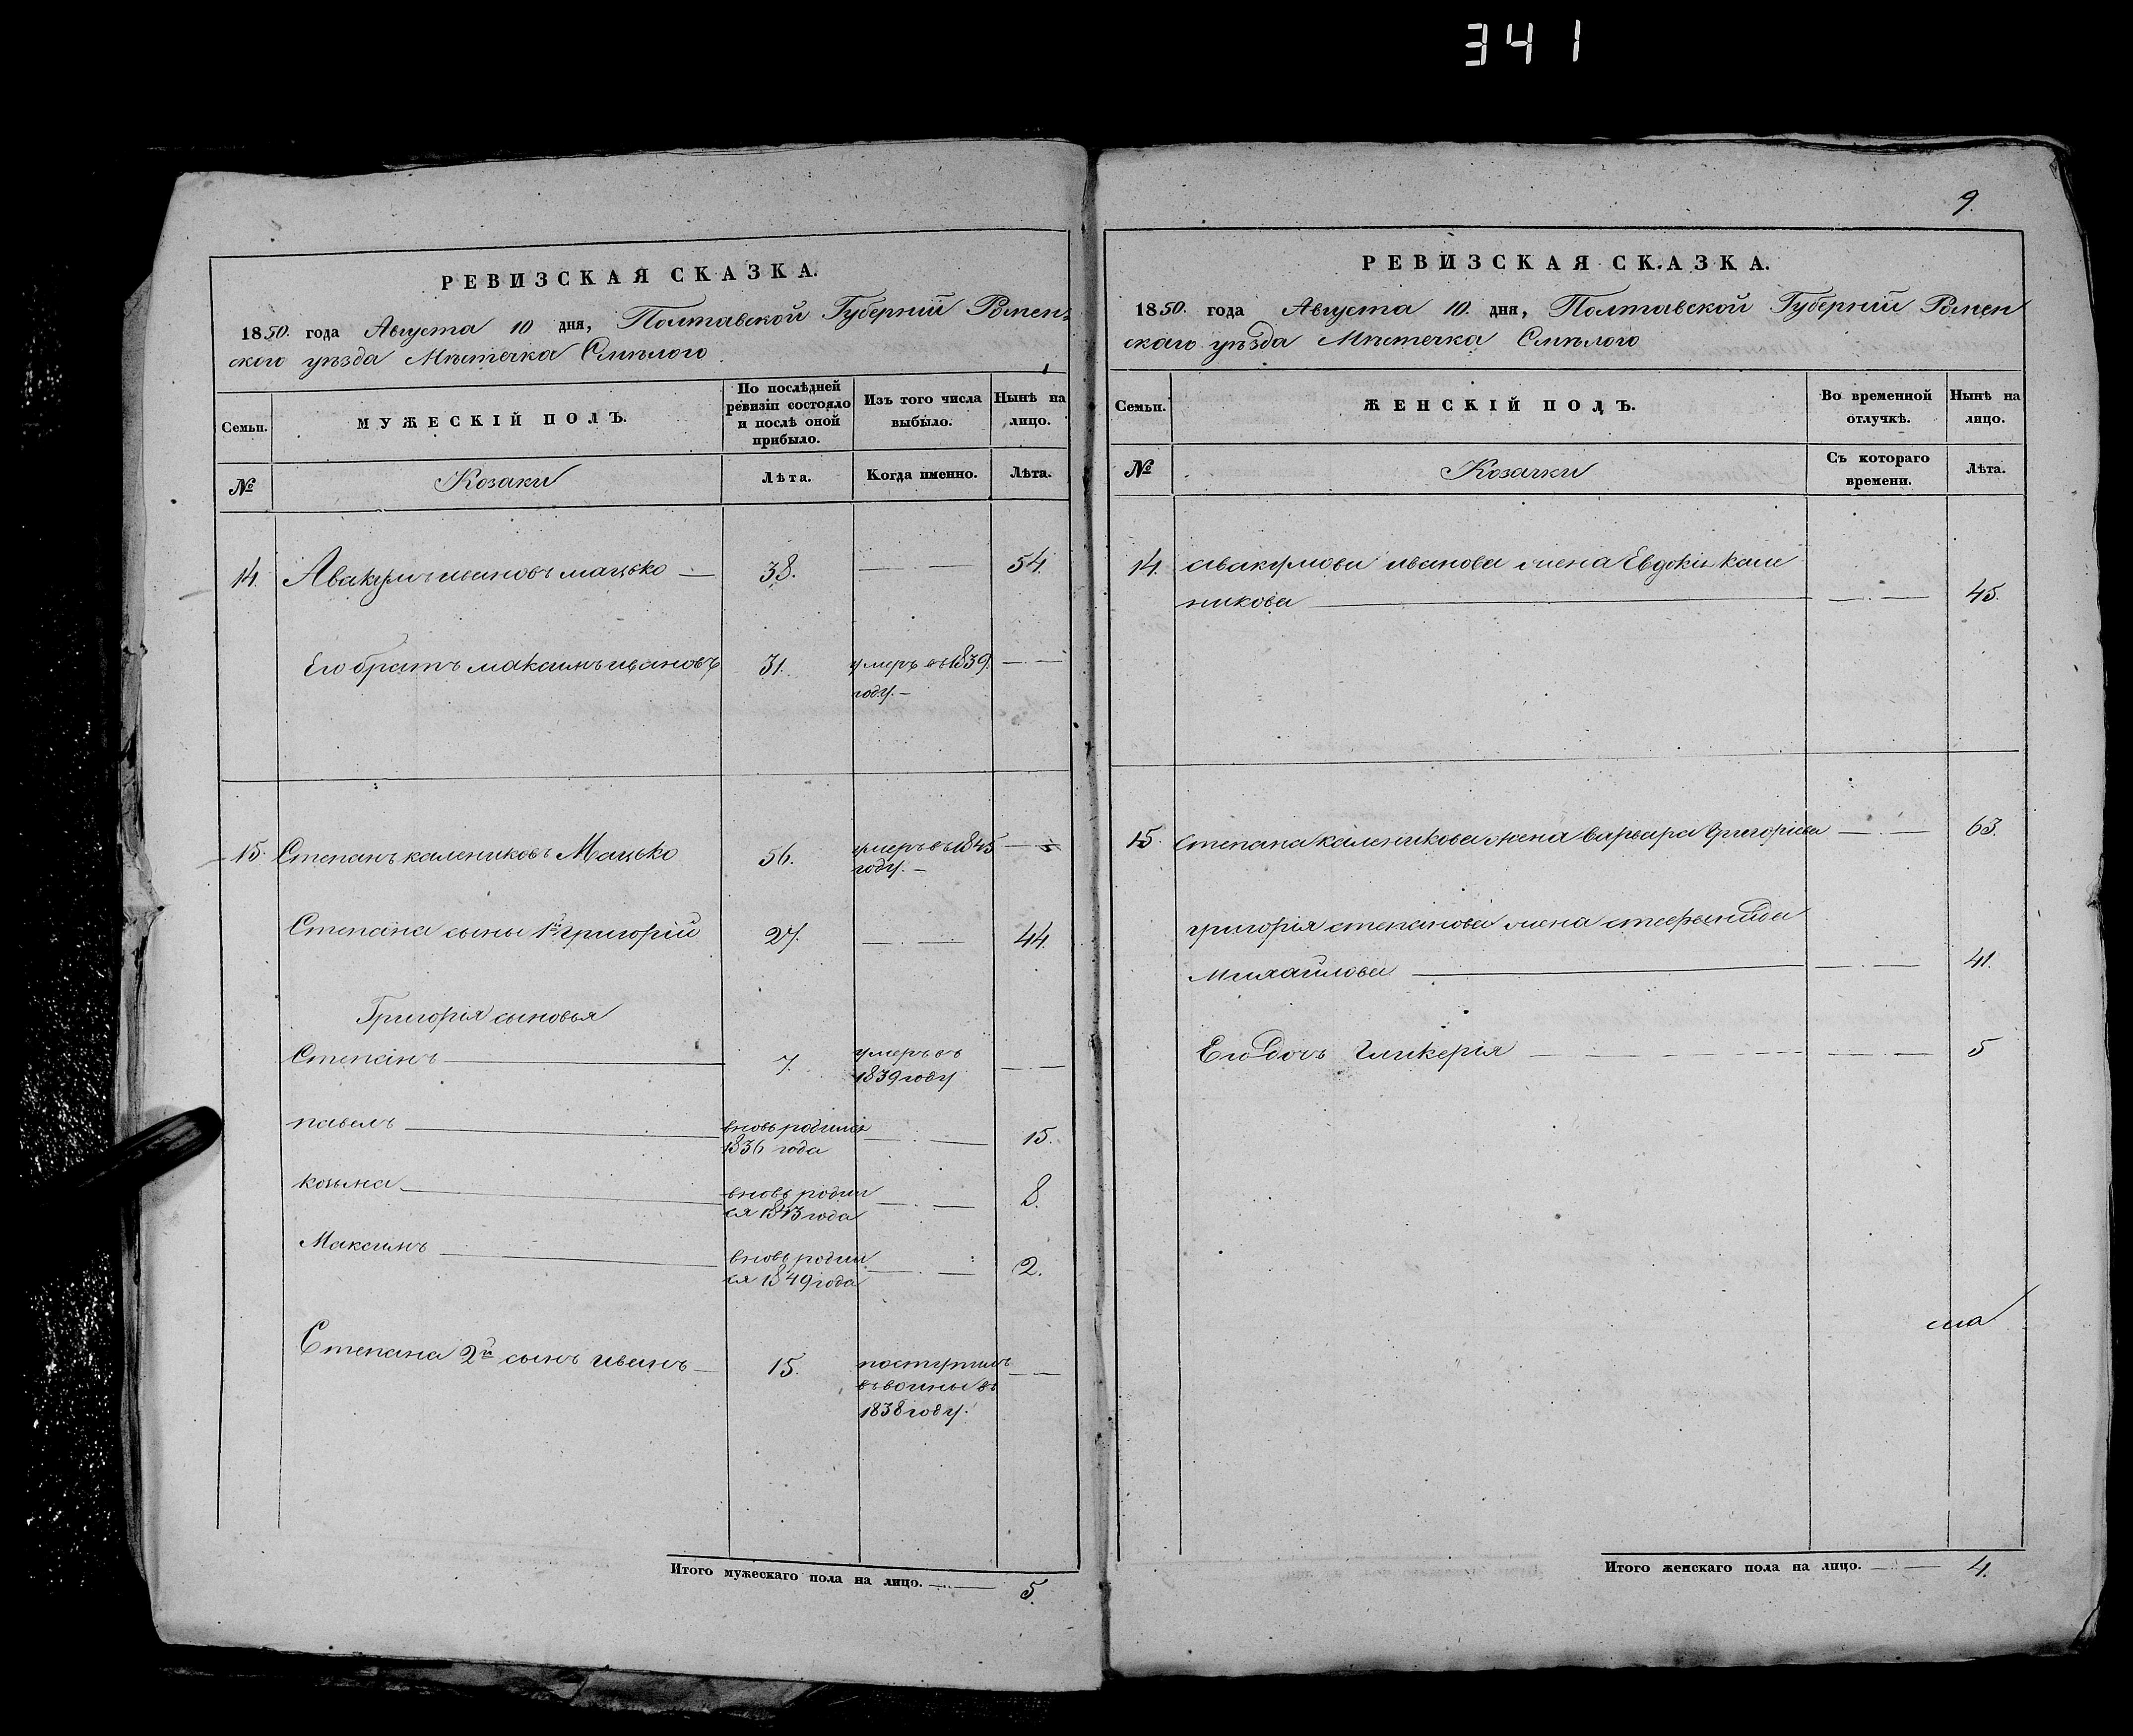 341
РЕВИЗСКАЯ СКАЗКА.
1850. года Августа 10 дня, Полтавской Губерніи Ромен-
ского уѣзда Мѣстечка Смѣлого
Семьи.
МУЖЕСКІЙ ПОЛЪ.
По послѣдней ревизіи состояло и послѣ оной прибыло.
Изъ того числа выбыло.
Нынѣ на лицо.
№
Козаки
Лѣта.
Когда именно.
Лѣта.
14. Авакумъ ивановъ мацько — 38. — — 54.
Его братъ максимъ ивановъ 31. умеръ въ 1839. — —
году. —
15. Степанъ калениковъ Мацько 56. умеръ въ 1845 —
году. —
Степана сыны 1й григорій 27. — — 44.
Григорія сыновья
Степанъ — 7. умеръ въ
1839 году — —
павелъ — вновь родился
1836 года — — 15.
козьма — вновь родил
ся 1843 года — — 8.
Максимъ — вновь родил
ся 1849 года — — 2.
Степана 2й сынъ иванъ — 15. поступилъ — —
въ воины въ
1838 году.
Итого мужескаго пола на лицо. — — 5.
9.
РЕВИЗСКАЯ СКАЗКА.
1850. года Августа 10. дня, Полтавской Губерніи Ромен
скаго уѣзда Мѣстечка Смѣлого
Семьи.
ЖЕНСКІЙ ПОЛЪ.
Во временной отлучкѣ.
Нынѣ на лицо.
№
Козачки
Съ котораго времени.
Лѣта.
14. авакумова иванова жена Евдокія кали
никова — — — 45.
15. степана каленикова жена варвара григориева — — 63.
григорія степанова жена стефанида
михайлова — — — 41.
Его дочь Гликерія — — — 5
Итого женскаго пола на лицо. — — 4.